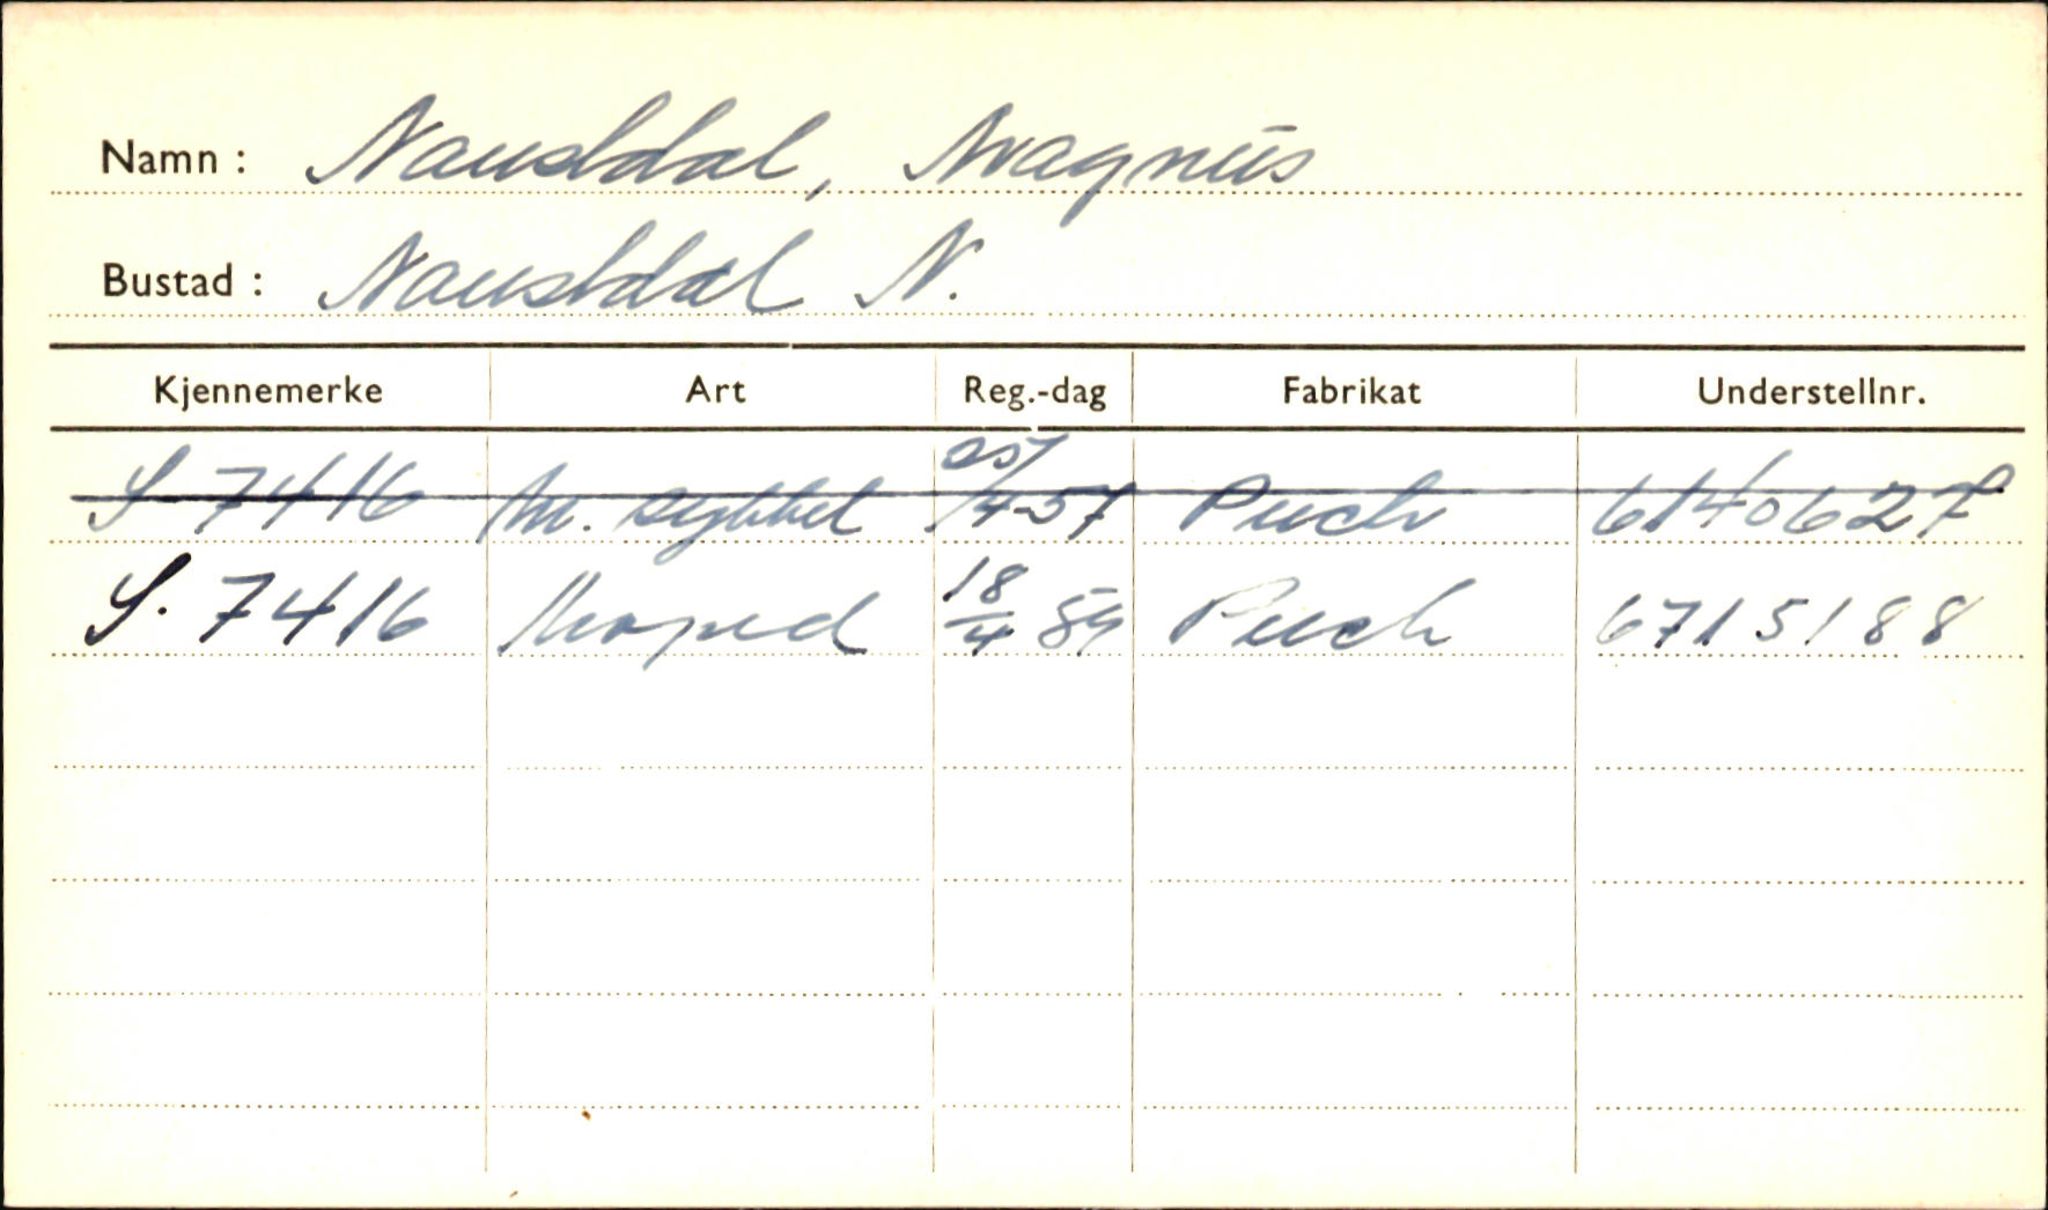 Namn: Naustdal, Magnus
Bustad: Naustdal N.
Kjennemerke Art Reg.-dag Fabrikat Understellnr.
S-7416 M. sykkel 25/4-57 Puch 6140627
S. 7416 Moped 18/4 59 Puch 6715188